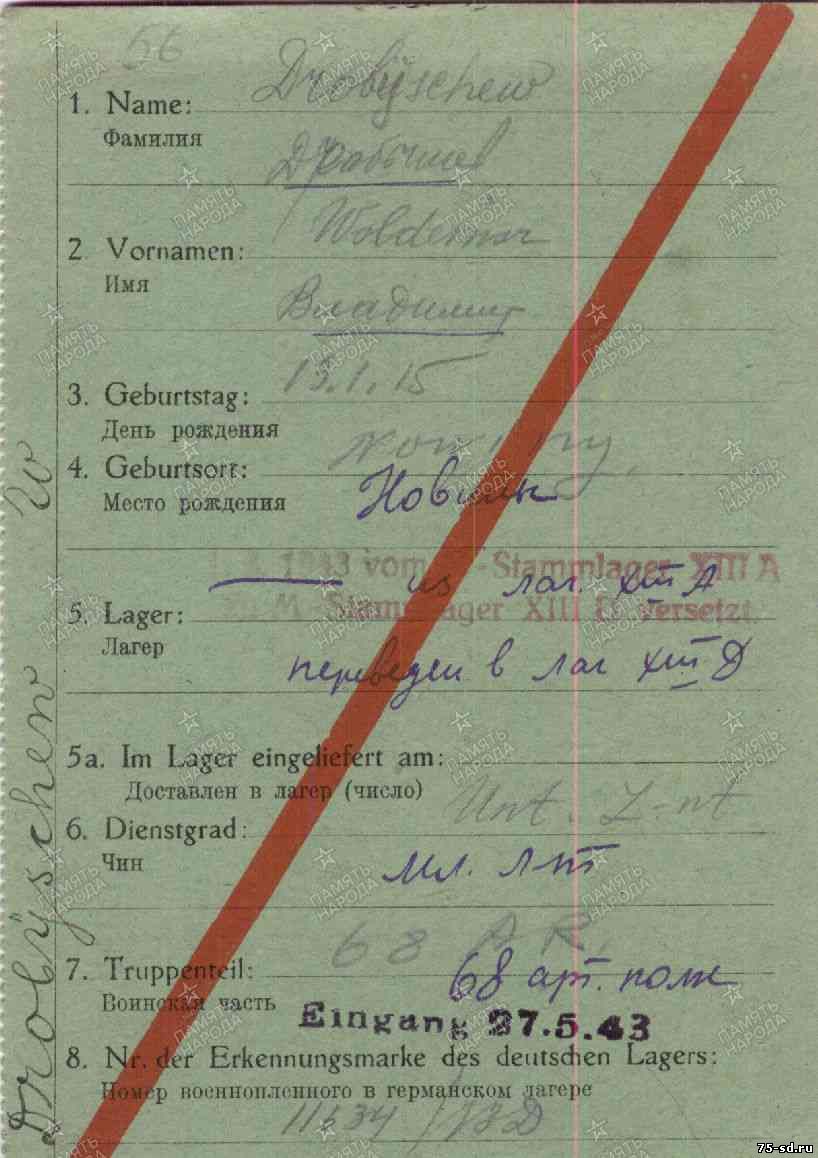 56
1. Name: Drobÿschew
Фамилия
Дробышев
2 Vornamen: Woldemar
Имя
Владимир
3. Geburtstag: 15.1.15
День рождения
4. Geburtsort:
Место рождения
1943 vom Stammlager XIII A
из лаг. XIII A
5. Lager: M.-Stammlager XIII D versetzt
Лагер
переведен в лаг XIII Д
5a. Im Lager eingeliefert am:
Доставлен в лагер (число)
6. Dienstgrad: Unt. L-nt
Чин
мл. л-т
7. Truppenteil: 68 A R.
68 арт. полк
Воинская часть
Eingang 27.5.43
8. Nr. der Erkennungsmarke des deutschen Lagers:
Номер военнопленного в германском лагере
Drobÿschew W
ПАМЯТЬ НАРОДА
75-sd.ru